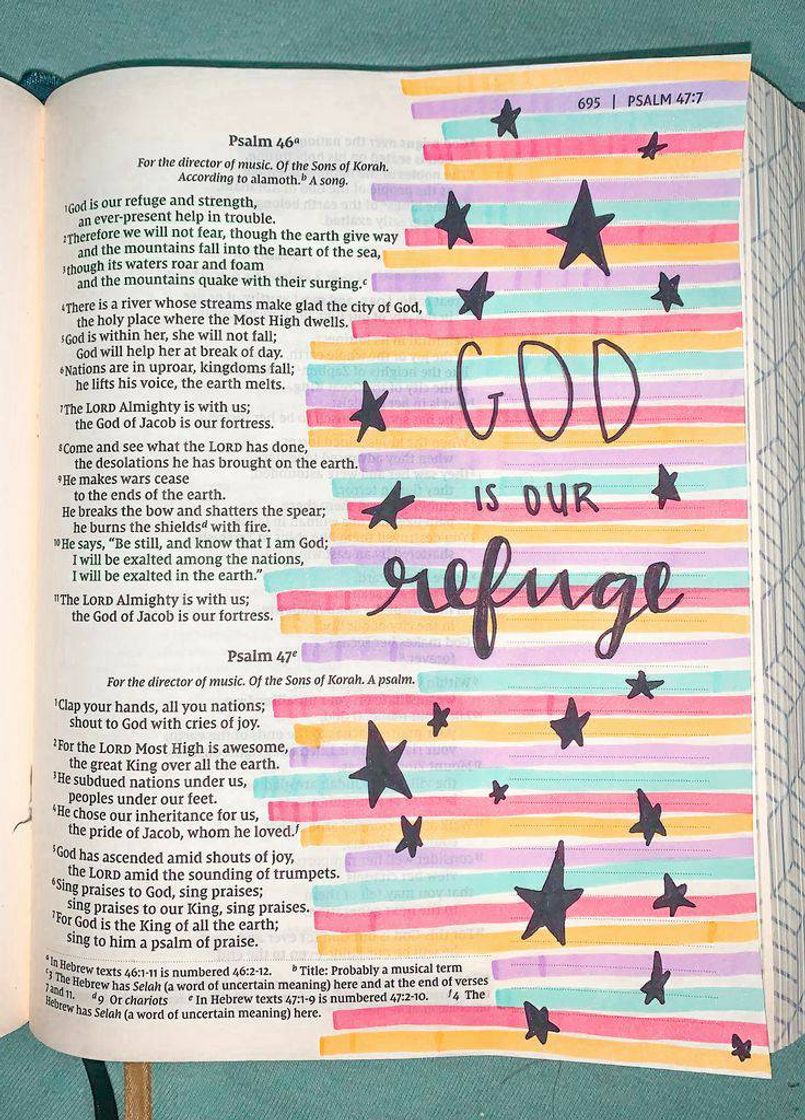 695 | PSALM 47:7
Psalm 46ª
For the director of music. Of the Sons of Korah.
According to alamoth.ᵇ A song.
¹God is our refuge and strength,
an ever-present help in trouble.
²Therefore we will not fear, though the earth give way
and the mountains fall into the heart of the sea,
³though its waters roar and foam
and the mountains quake with their surging.ᶜ
⁴There is a river whose streams make glad the city of God,
the holy place where the Most High dwells.
⁵God is within her, she will not fall;
God will help her at break of day.
⁶Nations are in uproar, kingdoms fall;
he lifts his voice, the earth melts.
⁷The LORD Almighty is with us;
the God of Jacob is our fortress.
⁸Come and see what the LORD has done,
the desolations he has brought on the earth.
⁹He makes wars cease
to the ends of the earth.
He breaks the bow and shatters the spear;
he burns the shieldsᵈ with fire.
¹⁰He says, “Be still, and know that I am God;
I will be exalted among the nations,
I will be exalted in the earth.”
¹¹The LORD Almighty is with us;
the God of Jacob is our fortress.
Psalm 47ᵉ
For the director of music. Of the Sons of Korah. A psalm.
¹Clap your hands, all you nations;
shout to God with cries of joy.
²For the LORD Most High is awesome,
the great King over all the earth.
³He subdued nations under us,
peoples under our feet.
⁴He chose our inheritance for us,
the pride of Jacob, whom he loved.ᶠ
⁵God has ascended amid shouts of joy,
the LORD amid the sounding of trumpets.
⁶Sing praises to God, sing praises;
sing praises to our King, sing praises.
⁷For God is the King of all the earth;
sing to him a psalm of praise.
ª In Hebrew texts 46:1-11 is numbered 46:2-12. ᵇ Title: Probably a musical term
ᶜ3 The Hebrew has Selah (a word of uncertain meaning) here and at the end of verses
7 and 11. ᵈ9 Or chariots ᵉ In Hebrew texts 47:1-9 is numbered 47:2-10. ᶠ4 The
Hebrew has Selah (a word of uncertain meaning) here.
GOD
IS OUR
refuge